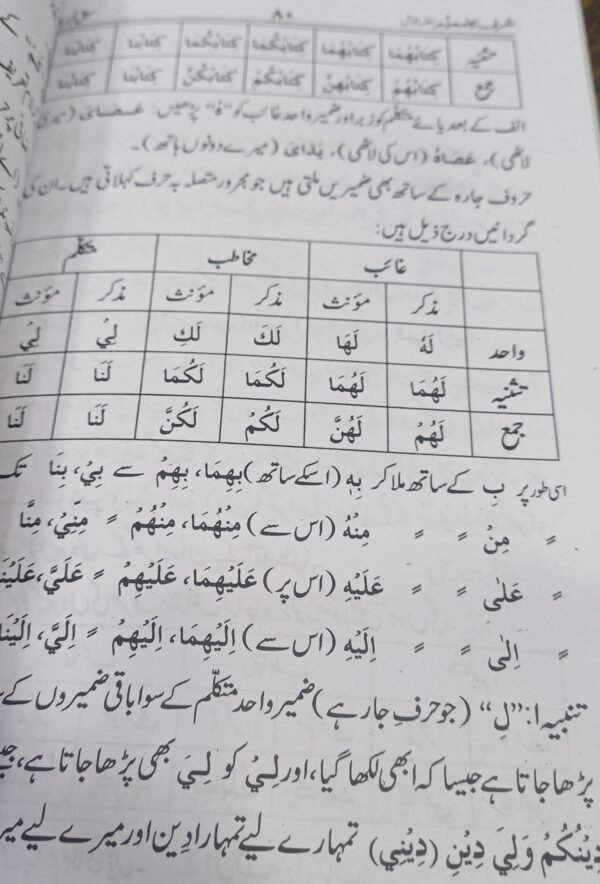 ۸۰
تثنیہ كِتَابُهُمَا كِتَابُهُمَا كِتَابُكُمَا كِتَابُكُمَا كِتَابُنَا كِتَابُنَا
جمع كِتَابُهُمْ كِتَابُهُنَّ كِتَابُكُمْ كِتَابُكُنَّ كِتَابُنَا كِتَابُنَا
الف کے بعد یائے متکلم کو زبر اور ضمیر واحد غائب کو ”هُ“ پڑھیں: عَصَايَ (میری
لاٹھی)، عَصَاهُ (اس کی لاٹھی)، يَدَايَ (میرے دونوں ہاتھ)۔
حروف جارہ کے ساتھ بھی ضمیریں ملتی ہیں جو مجرور متصلہ بہ حرف کہلاتی ہیں۔ ان کی
گردانیں درج ذیل ہیں:
غائب مخاطب متکلّم
مذکر مؤنث مذکر مؤنث مذکر مؤنث
واحد لَهُ لَهَا لَكَ لَكِ لِيْ لِيْ
تثنیہ لَهُمَا لَهُمَا لَكُمَا لَكُمَا لَنَا لَنَا
جمع لَهُمْ لَهُنَّ لَكُمْ لَكُنَّ لَنَا لَنَا
اسی طور پر بِ کے ساتھ ملا کر بِهٖ (اسکے ساتھ) بِهِمَا، بِهِمْ سے بِيْ، بِنَا تک
〃 مِنْ 〃 〃 مِنْهُ (اس سے) مِنْهُمَا، مِنْهُمْ 〃 مِنِّيْ، مِنَّا
〃 عَلٰى 〃 〃 عَلَيْهِ (اس پر) عَلَيْهِمَا، عَلَيْهِمْ 〃 عَلَيَّ، عَلَيْنَا
〃 اِلٰى 〃 〃 اِلَيْهِ (اس سے) اِلَيْهِمَا، اِلَيْهِمْ 〃 اِلَيَّ، اِلَيْنَا
تنبیہ۱: ”لِ“ (جو حرفِ جار ہے) ضمیر واحد متکلّم کے سوا باقی ضمیروں کے
پڑھا جاتا ہے جیسا کہ ابھی لکھا گیا، اور لِيْ کو لِيَ بھی پڑھا جاتا ہے، جیسے
دِيْنُكُمْ وَلِيَ دِيْنِ (دِيْنِيْ) تمہارے لیے تمہارا دین اور میرے لیے